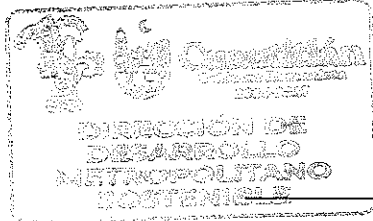 Cuautitlán
DIRECCIÓN DE
DESARROLLO
METROPOLITANO
SOSTENIBLE